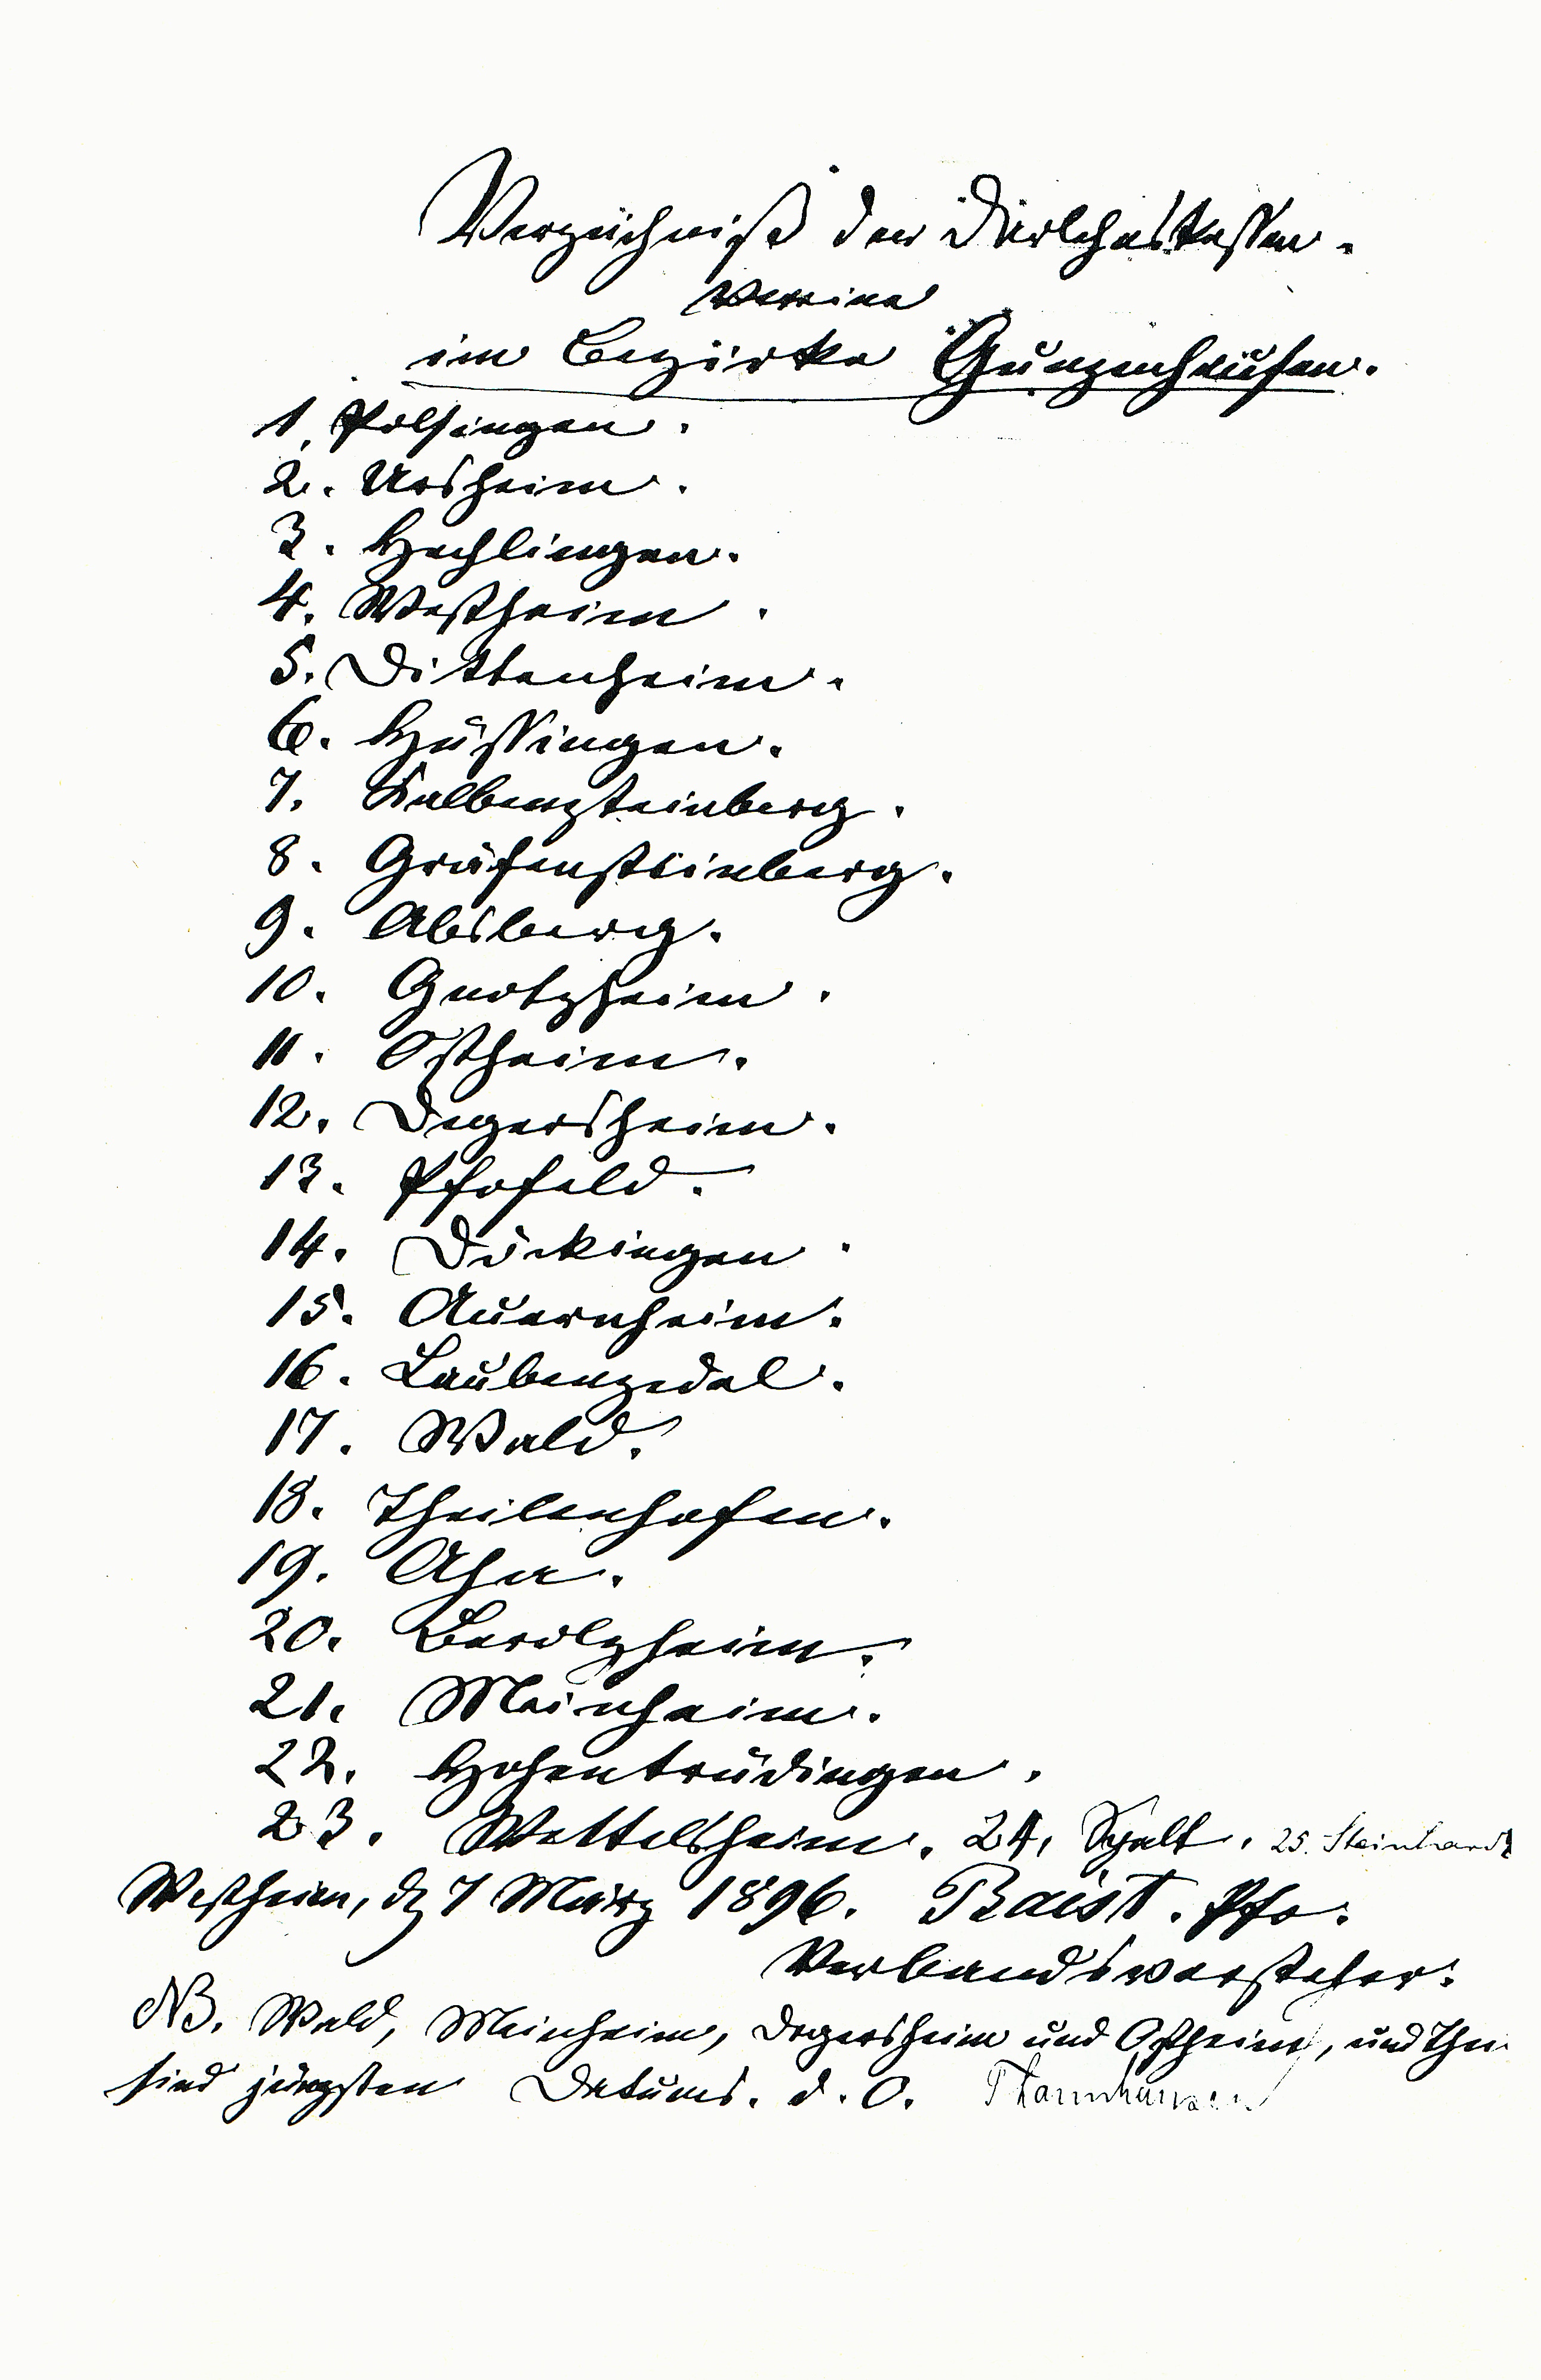 Verzeichniß der Darlehenskassen-
Vereine
im Bezirke Gunzenhausen.
1. Polsingen.
2. Ursheim.
3. Hechlingen.
4. Westheim.
5. Dittenheim.
6. Hüssingen.
7. Kalbensteinberg.
8. Gräfensteinberg.
9. Absberg.
10. Gnotzheim.
11. Ostheim.
12. Degersheim.
13. Pfofeld.
14. Döckingen.
15. Auernheim.
16. Laubenzedel.
17. Wald.
18. Theilenhofen.
19. Aha.
20. Berolzheim.
21. Meinheim.
22. Hohentrüdingen.
23. Wettelsheim. 24. Spalt. 25. Steinhardt
Westheim, d. 7 März 1896. Baist. Pfr.
Verbandsvorsteher.
NB. Wald, Meinheim, Degersheim und Ostheim, und Thn
sind jüngsten Datums. d. O. Thannhausen